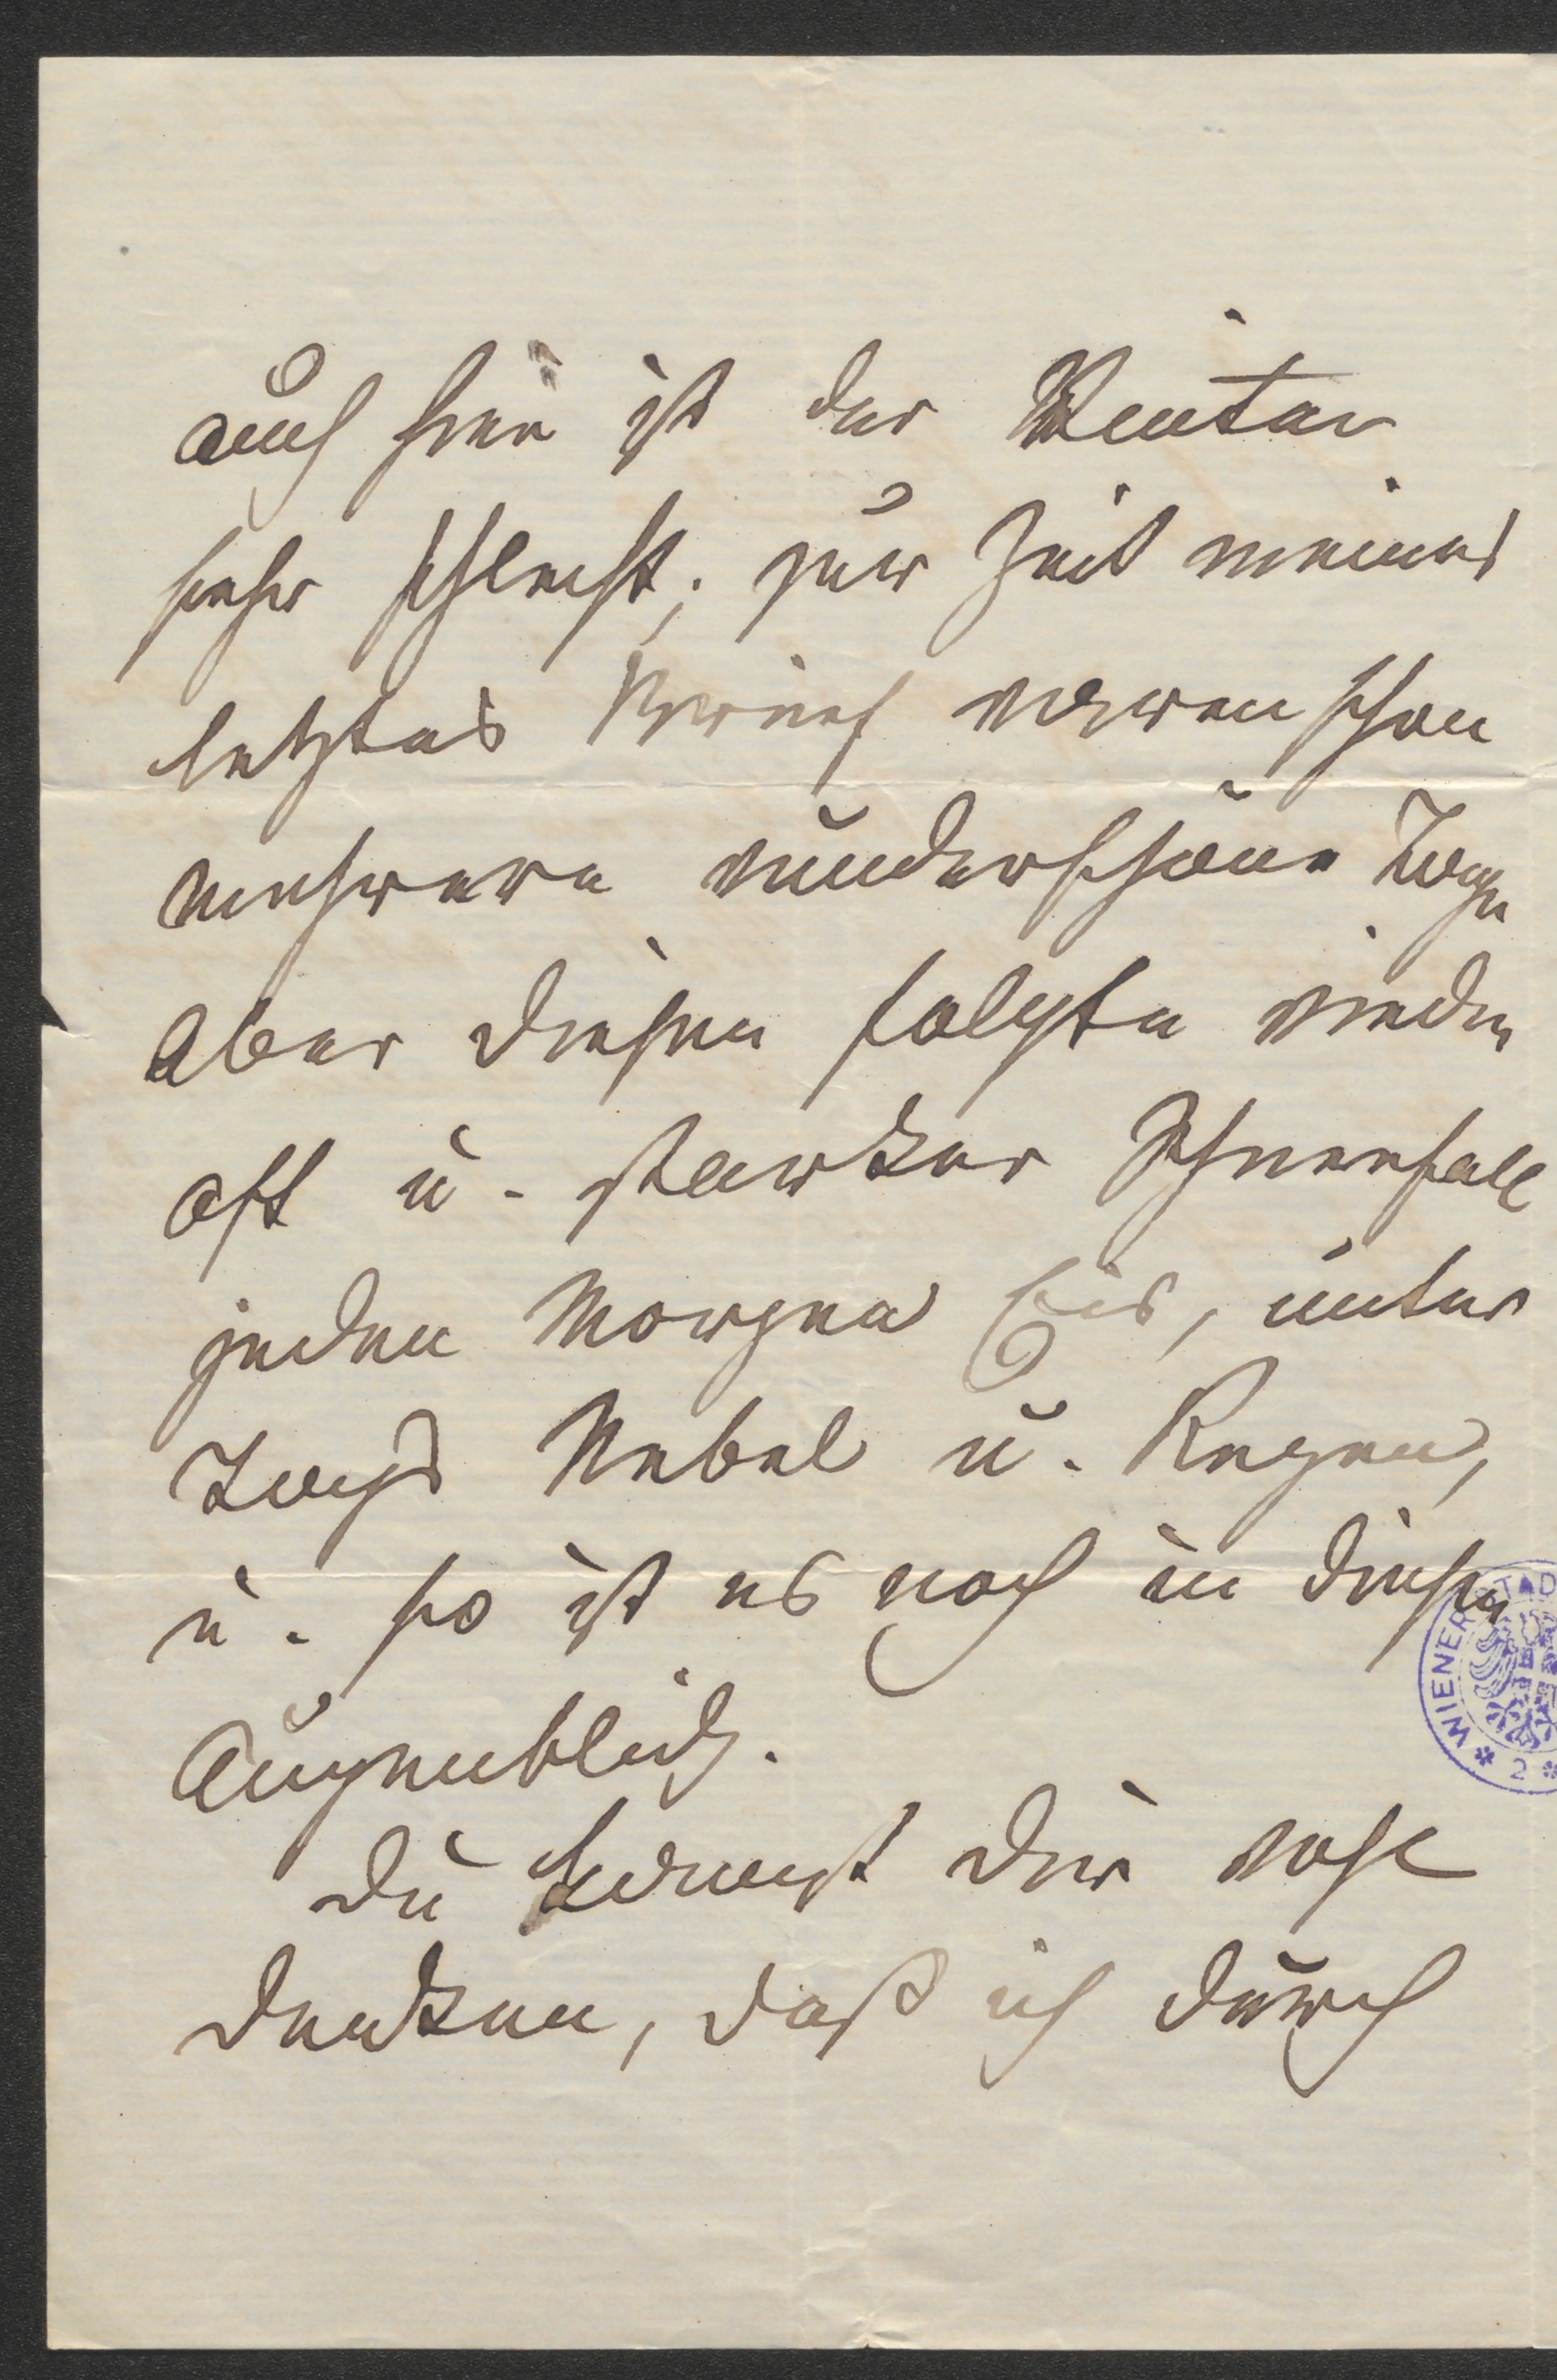 auch hier ist der Winter
sehr schlecht; zur Zeit meines
letztes Briefs waren schon
mehrere wunderschöne Tage
aber diesen folgte wieder
oft u. starker Schneefall
jeden Morgen Eis, unter
Tags Nebel u. Regen,
u. so ist es noch in diesen
Augenblick.
Du kannst Dir wohl
denken, daß ich durch
WIENER STAD
* 2 *